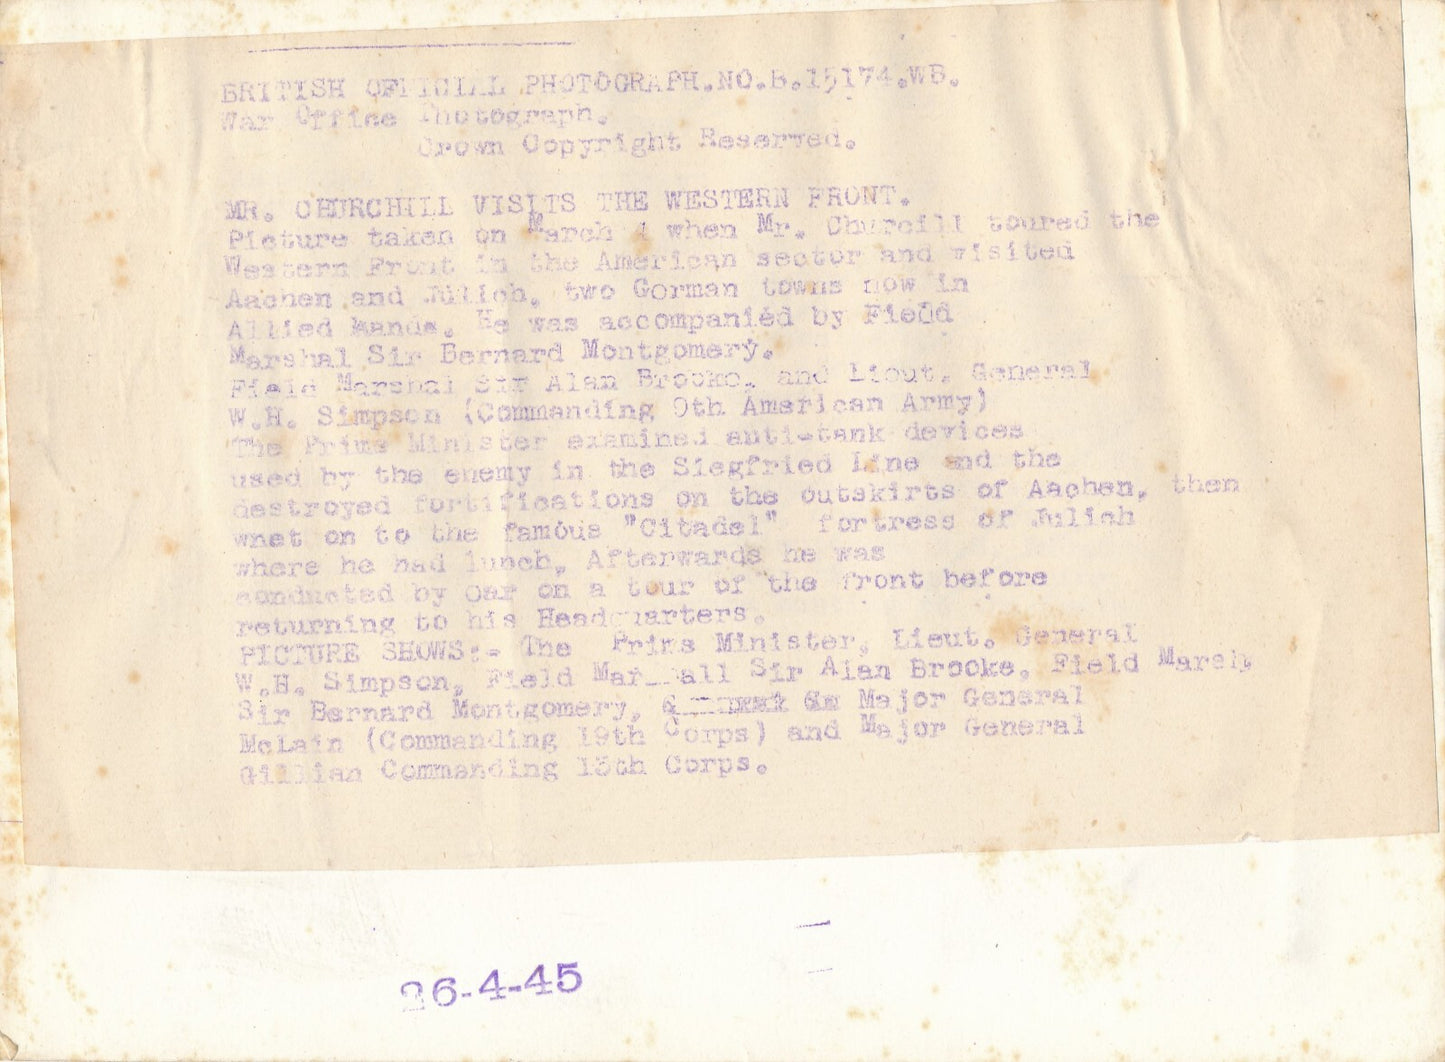 BRITISH OFFICIAL PHOTOGRAPH.NO.B.15174.WB.
War Office Photograph.
Crown Copyright Reserved.
MR. CHURCHILL VISITS THE WESTERN FRONT.
Picture taken on March when Mr. Churcill toured the
Western Front in the American sector and visited
Aachen and Julich, two Gorman towns now in
Allied Hands. He was accompanied by Field
Marshal Sir Bernard Montgomery.
Field Marshal Sir Alan Brooke, and Lieut. General
W.H. Simpson (Commanding 9th American Army)
The Prime Minister examined anti-tank devices
used by the enemy in the Siegfried Line and the
destroyed fortifications on the outskirts of Aachen, then
wnet on to the famous "Citadel" fortress of Julich
where he had lunch, Afterwards he was
conducted by car on a tour of the front before
returning to his Headquarters.
PICTURE SHOWS:- The Prime Minister, Lieut. General
W.H. Simpson, Field Marshall Sir Alan Brooke, Field Marsh,
Sir Bernard Montgomery, Major General
McLain (Commanding 19th Corps) and Major General
Gillian Commanding 13th Corps.
26-4-45